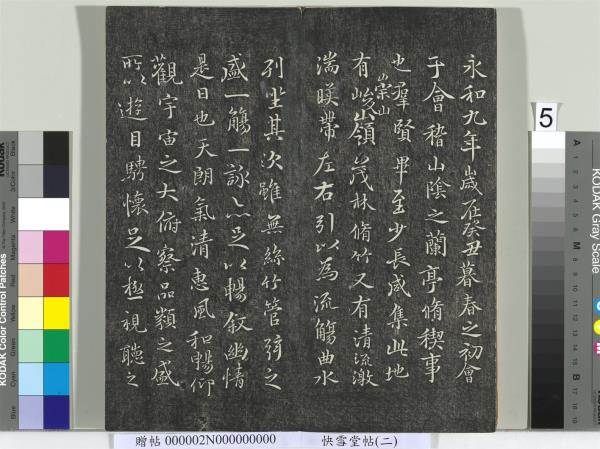 永和九年歲在癸丑暮春之初會
于會稽山陰之蘭亭脩稧事
也羣賢畢至少長咸集此地
有崇山峻嶺茂林脩竹又有清流激
湍暎帶左右引以為流觴曲水
列坐其次雖無絲竹管弦之
盛一觴一詠亦足以暢敘幽情
是日也天朗氣清惠風和暢仰
觀宇宙之大俯察品類之盛
所以遊目騁懷足以極視聽之
5
贈帖 000002N000000000 快雪堂帖(二)
KODAK Color Control Patches
Blue Cyan Green Yellow Red Magenta White 3/Color Black
KODAK Gray Scale
A 1 2 3 4 5 6 M 8 9 10 11 12 13 14 15 B 17 18 19
C
M